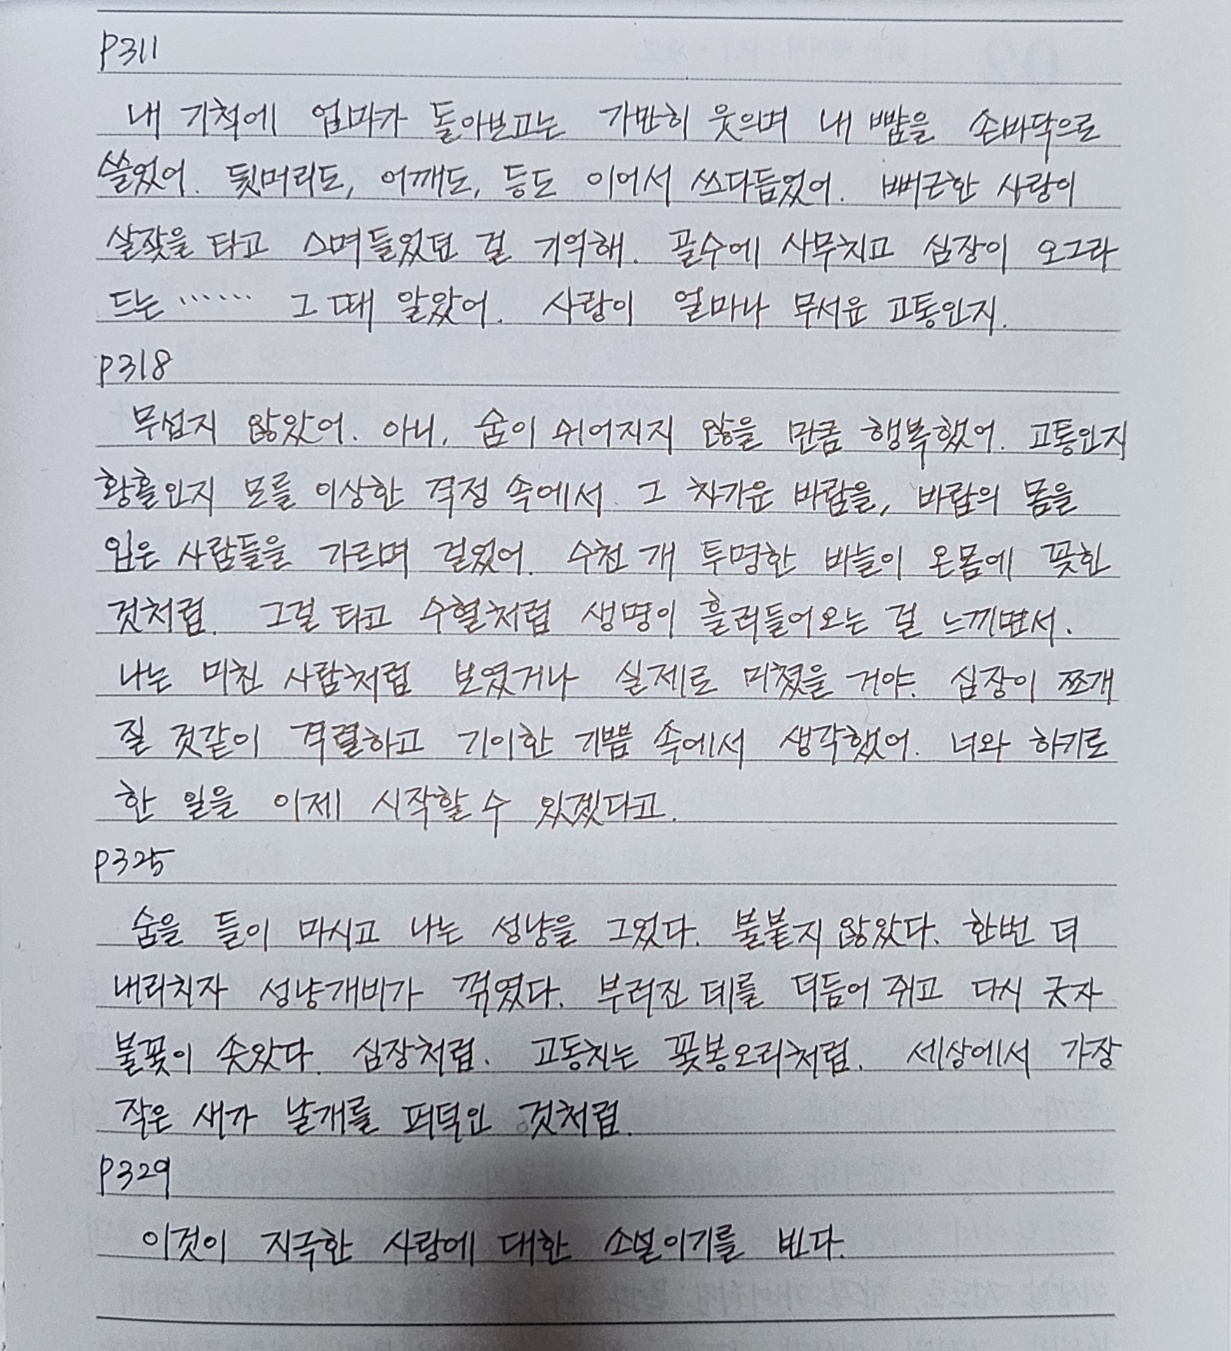 P311
내 기척에 엄마가 돌아보고는 가만히 웃으며 내 뺨을 손바닥으로
쓸었어. 뒷머리도, 어깨도, 등도 이어서 쓰다듬었어. 뻐근한 사랑이
살갗을 타고 스며들었던 걸 기억해. 골수에 사무치고 심장이 오그라
드는 …… 그 때 알았어. 사랑이 얼마나 무서운 고통인지.
P318
무섭지 않았어. 아니, 숨이 쉬어지지 않을 만큼 행복했어. 고통인지
황홀인지 모를 이상한 격정 속에서 그 차가운 바람을, 바람의 몸을
입은 사람들을 가르며 걸었어. 수천 개 투명한 바늘이 온몸에 꽂힌
것처럼. 그걸 타고 수혈처럼 생명이 흘러들어오는 걸 느끼면서.
나는 미친 사람처럼 보였거나 실제로 미쳤을 거야. 심장이 쪼개
질 것같이 격렬하고 기이한 기쁨 속에서 생각했어. 너와 하기로
한 일을 이제 시작할 수 있겠다고.
P325
숨을 들이 마시고 나는 성냥을 그었다. 불붙지 않았다. 한번 더
내리치자 성냥개비가 꺾였다. 부러진 데를 더듬어 쥐고 다시 긋자
불꽃이 솟았다. 심장처럼. 고동치는 꽃봉오리처럼. 세상에서 가장
작은 새가 날개를 퍼덕인 것처럼.
P329
이것이 지극한 사랑에 대한 소설이기를 빈다.